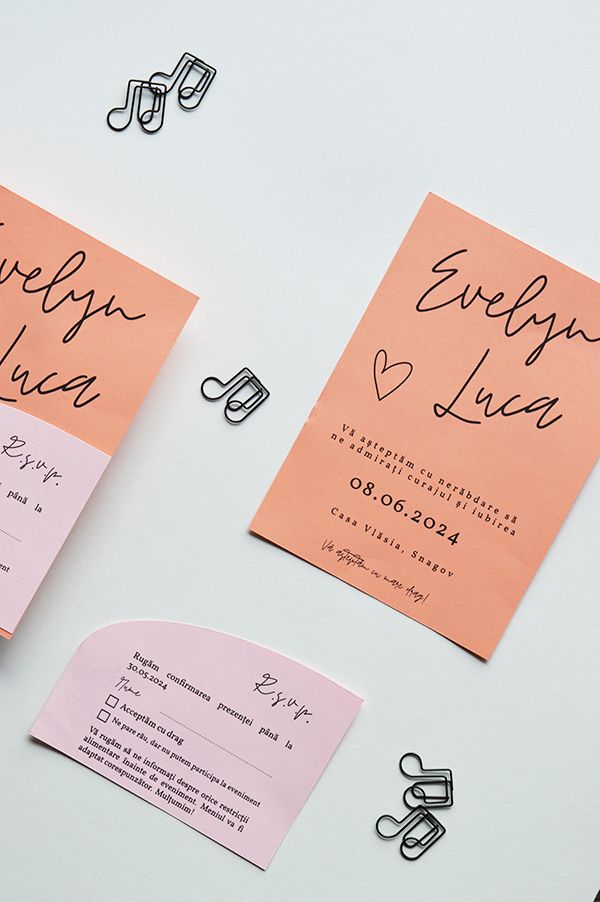 Evelyn
Luca
R.s.v.p.
până la
Evelyn
Luca
Vă așteptăm cu nerăbdare să
ne admirați curajul și iubirea
08.06.2024
Casa Vlăsia, Snagov
Vă așteptăm cu mare drag!
R.s.v.p.
Rugăm confirmarea prezenței până la
30.05.2024
Nume
Acceptăm cu drag
Ne pare rău, dar nu putem participa la eveniment
Vă rugăm să ne informați despre orice restricții
alimentare înainte de eveniment. Meniul va fi
adaptat corespunzător. Mulțumim!